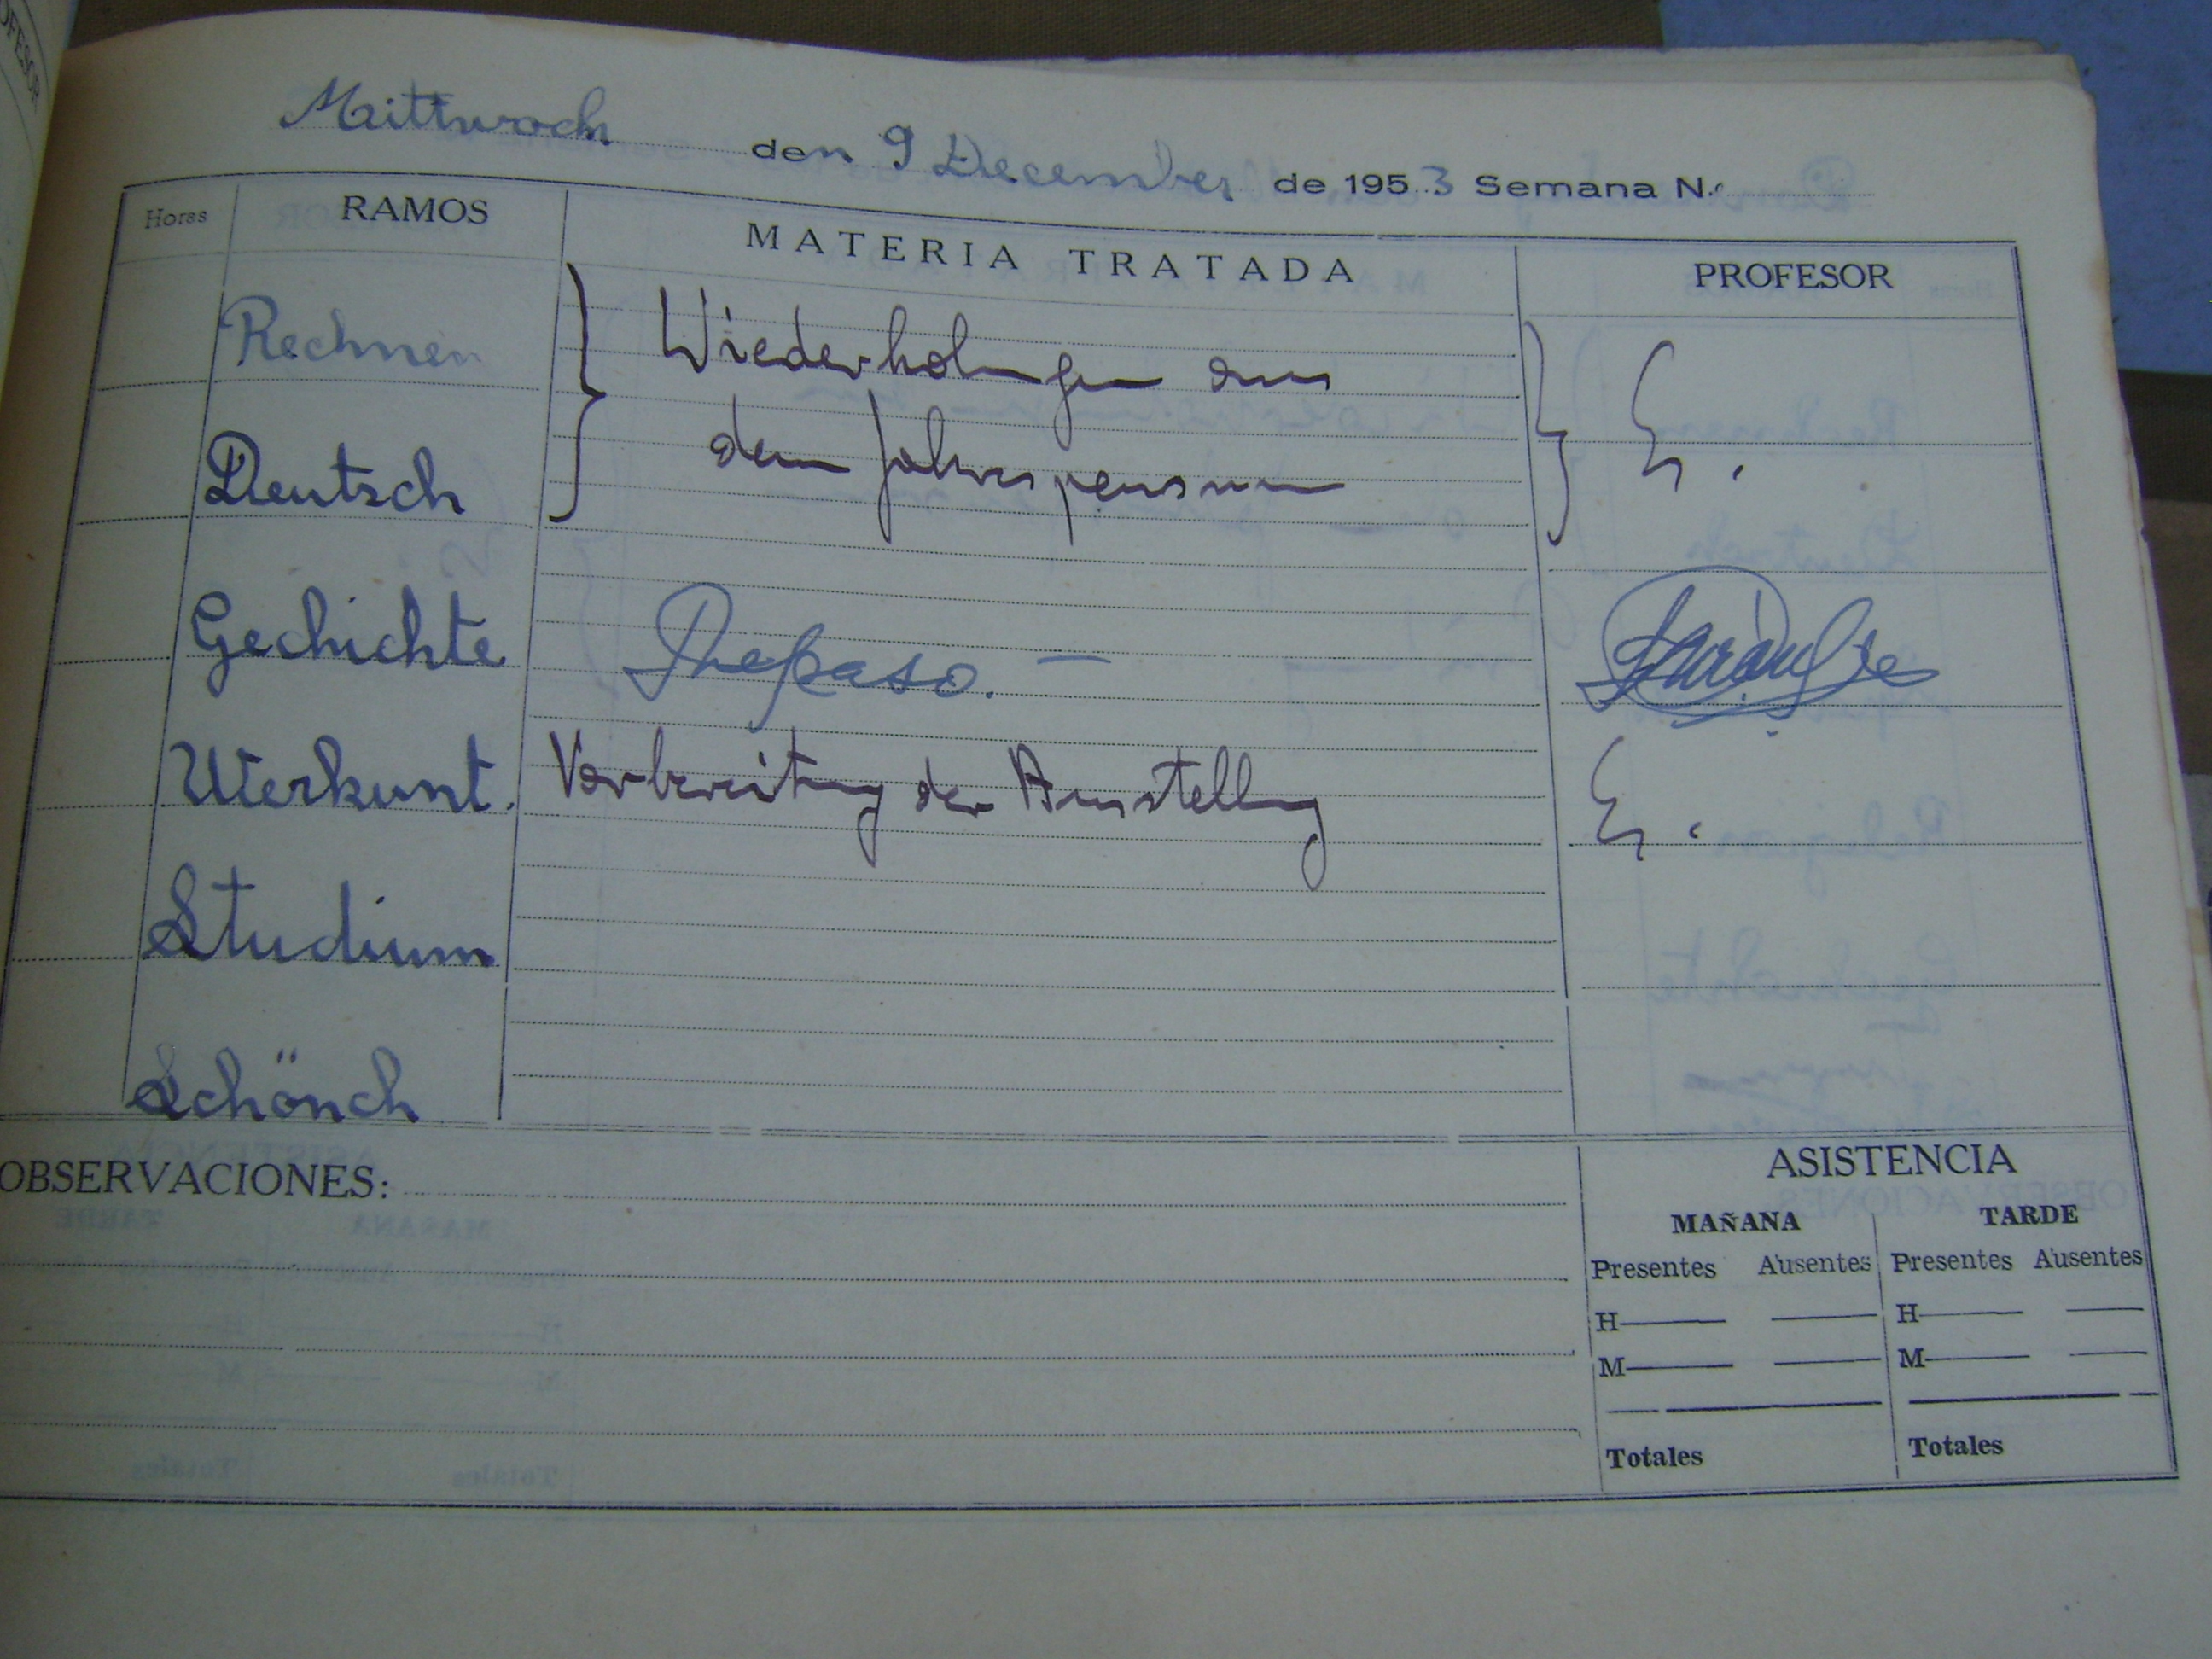 Mittwoch den 9 December de 1953 Semana N.º
Horas RAMOS MATERIA TRATADA PROFESOR
Rechnen } Wiederholungen aus } E.
Deutsch dem Jahrespensum
Gechichte Repaso. —
Werkunt. Vorbereitung der Ausstellung E.
Studium
Schönch
OBSERVACIONES: ASISTENCIA
MAÑANA TARDE
Presentes Ausentes Presentes Ausentes
H H
M M
Totales Totales